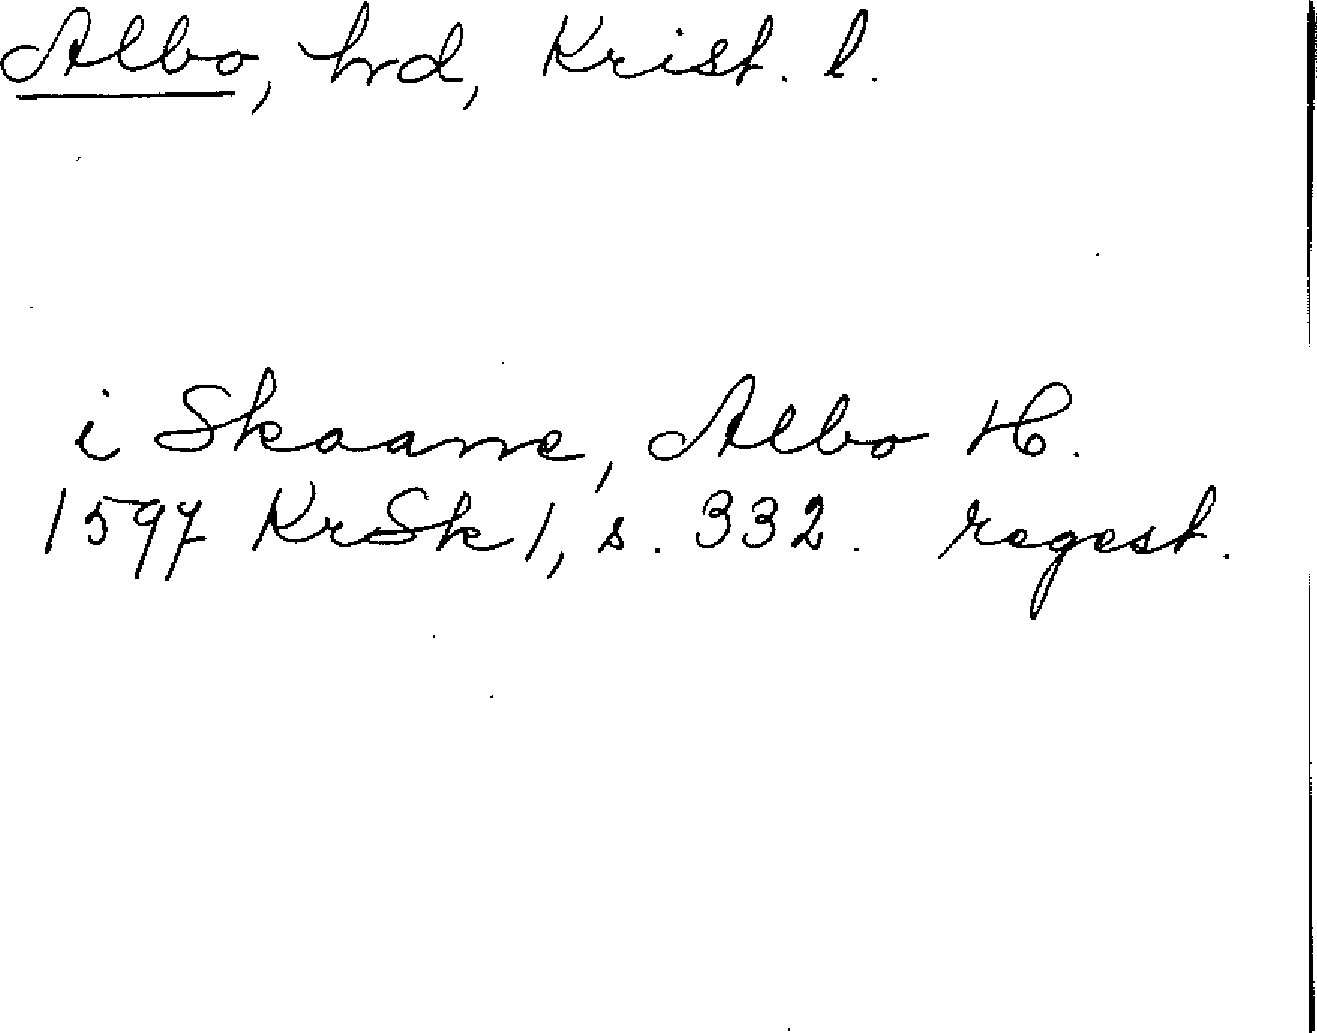 Albo, hrd, Krist. l.
i Skaane, Albo H.
1597 KrSk 1, s. 332. regest.